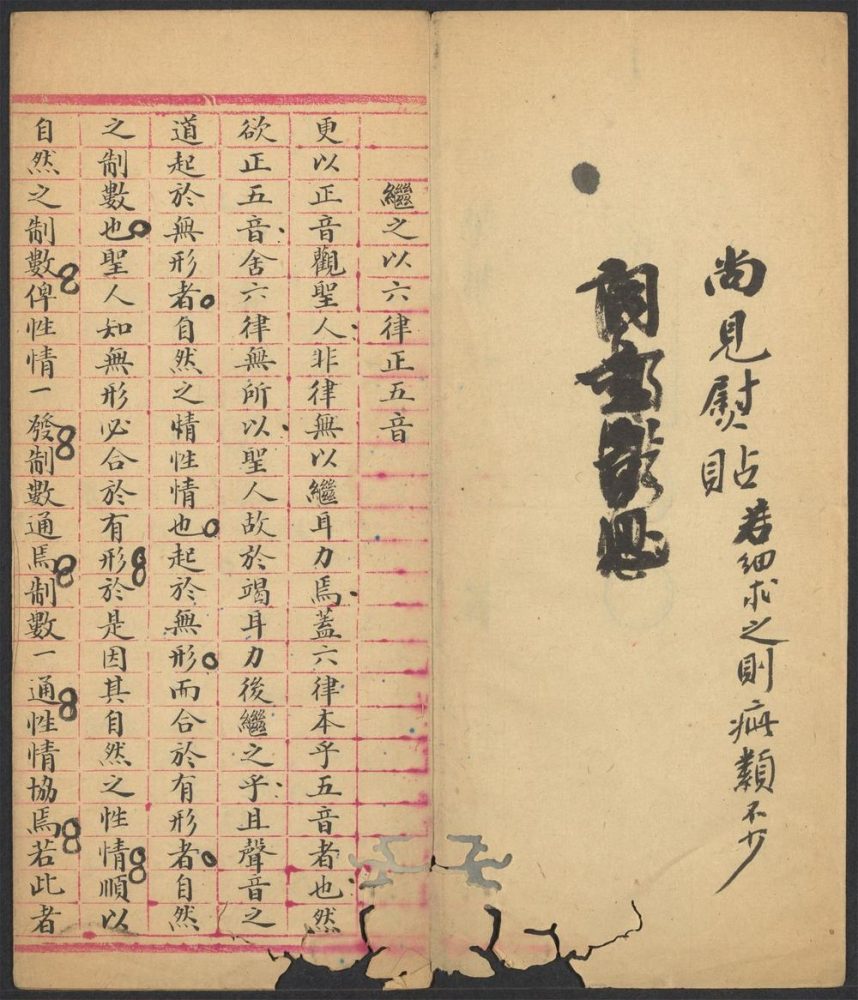 尚見熨貼若細求之則疵類不少
繼之以六律正五音
更以正音觀聖人非律無以繼耳力焉蓋六律本乎五音者也然
欲正五音舍六律無所以聖人故於竭耳力後繼之乎且聲音之
道起於無形者自然之情性情也起於無形而合於有形者自然
之制數也聖人知無形必合於有形於是因其自然之性情順以
自然之制數俾性情一發制數通焉制數一通性情協焉若此者